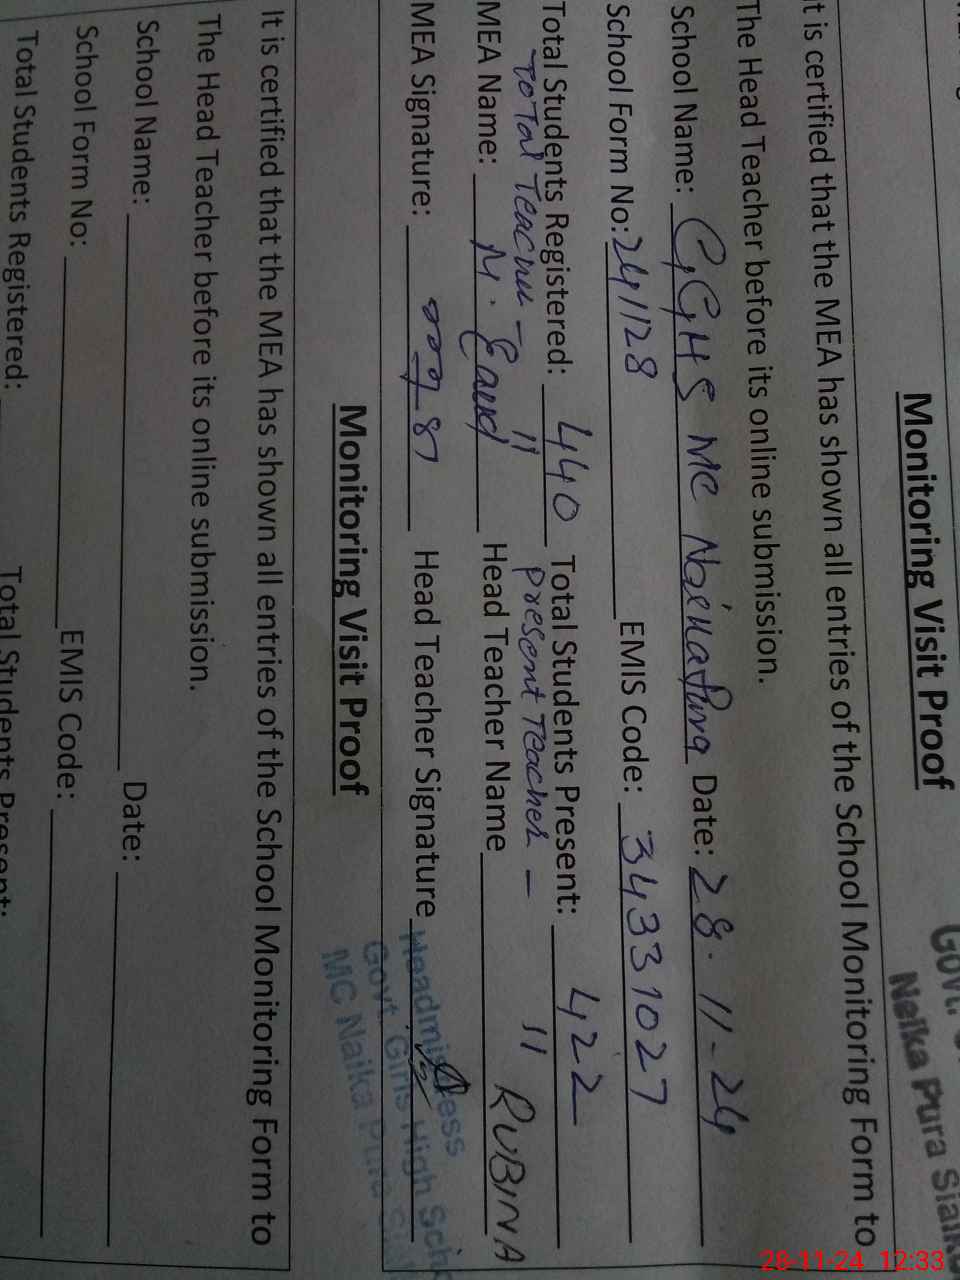 Monitoring Visit Proof
Govt.
Neika Pura Sialko
It is certified that the MEA has shown all entries of the School Monitoring Form to
The Head Teacher before its online submission.
School Name: GGHS MC Naikapura Date: 28.11-24
School Form No: 241128 EMIS Code: 34331027
Total Students Registered: 440 Total Students Present: 422
Total Teacher - 11 Present Teacher - 11
MEA Name: M. Head Teacher Name RUBINA
MEA Signature: Head Teacher Signature
Headmistress
Govt. Girls High Scho
MC Naika Pura
Monitoring Visit Proof
It is certified that the MEA has shown all entries of the School Monitoring Form to
The Head Teacher before its online submission.
School Name: Date:
School Form No: EMIS Code:
Total Students Registered: Total Students Present:
28-11-24 12:33